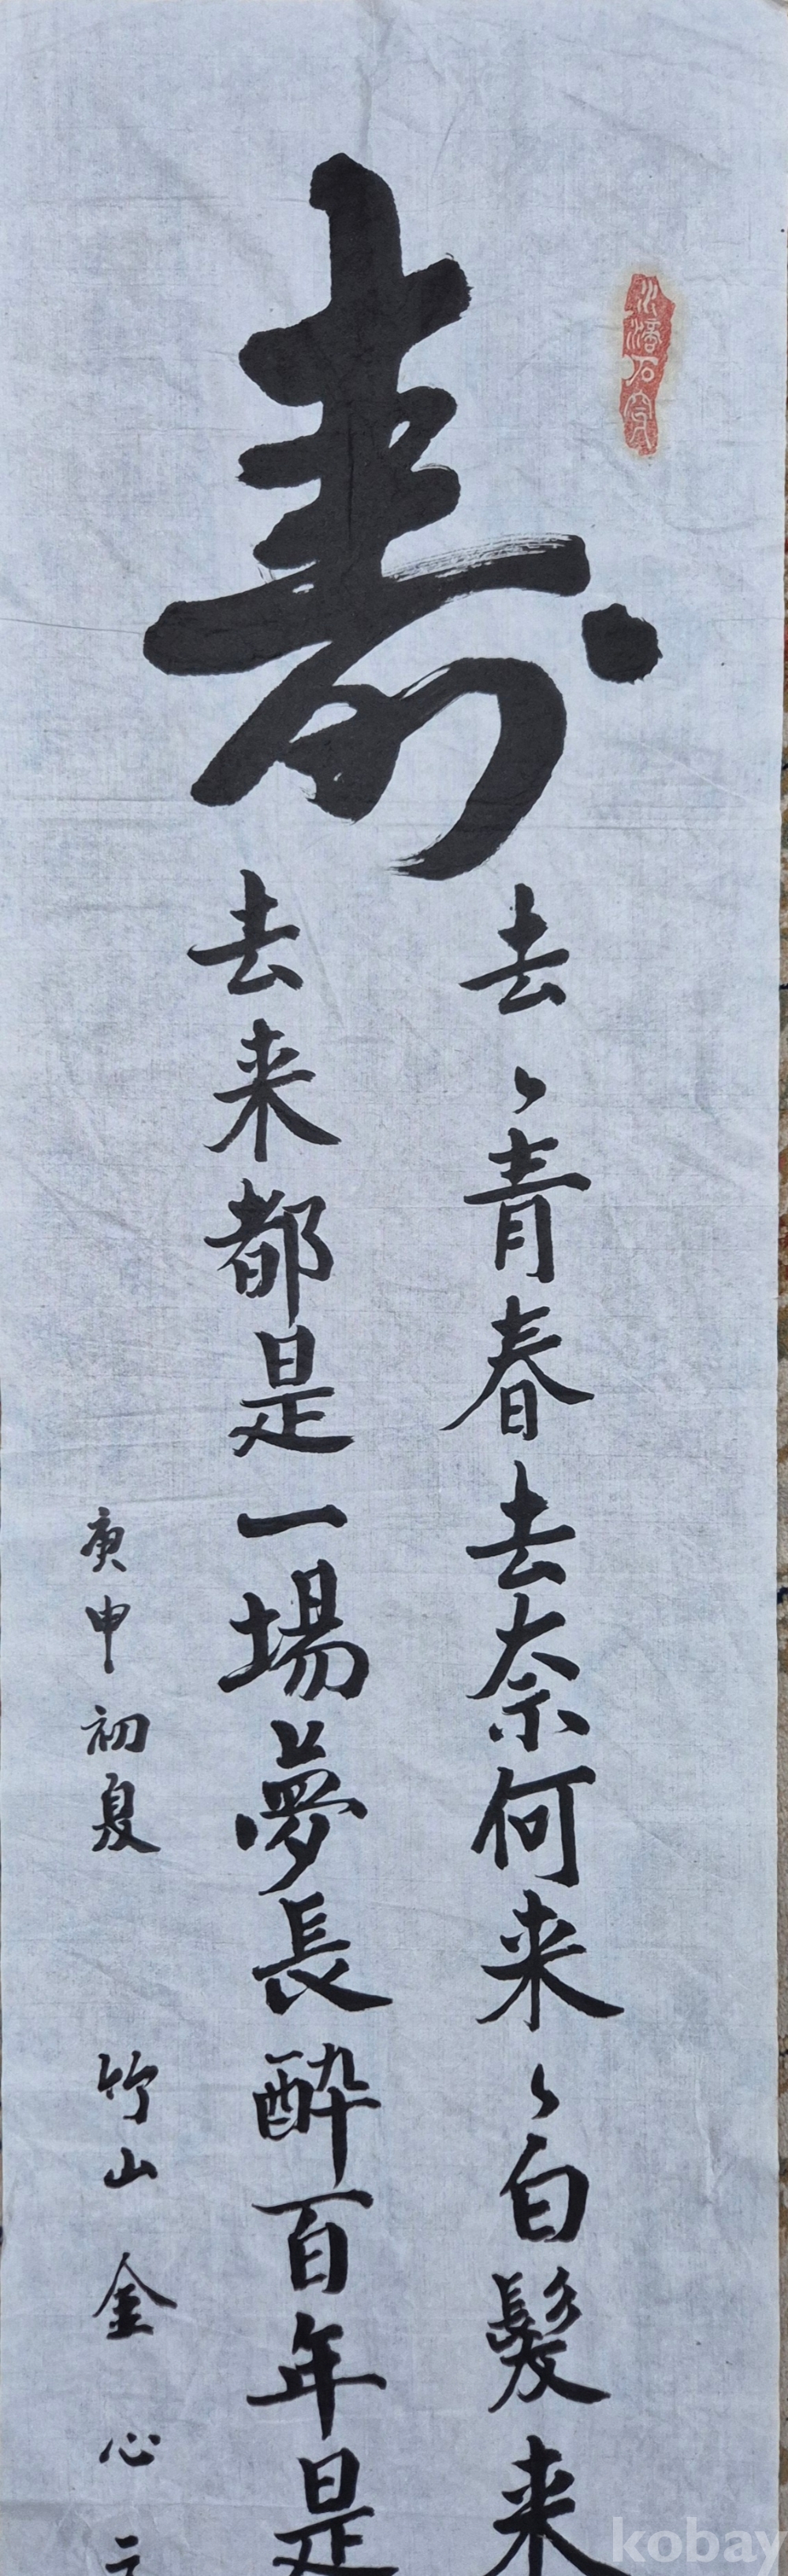 壽
水滴石穿
去〻青春去奈何来〻白髮来
去来都是一場夢長醉百年是
庚申初夏 竹山 金心
kobay